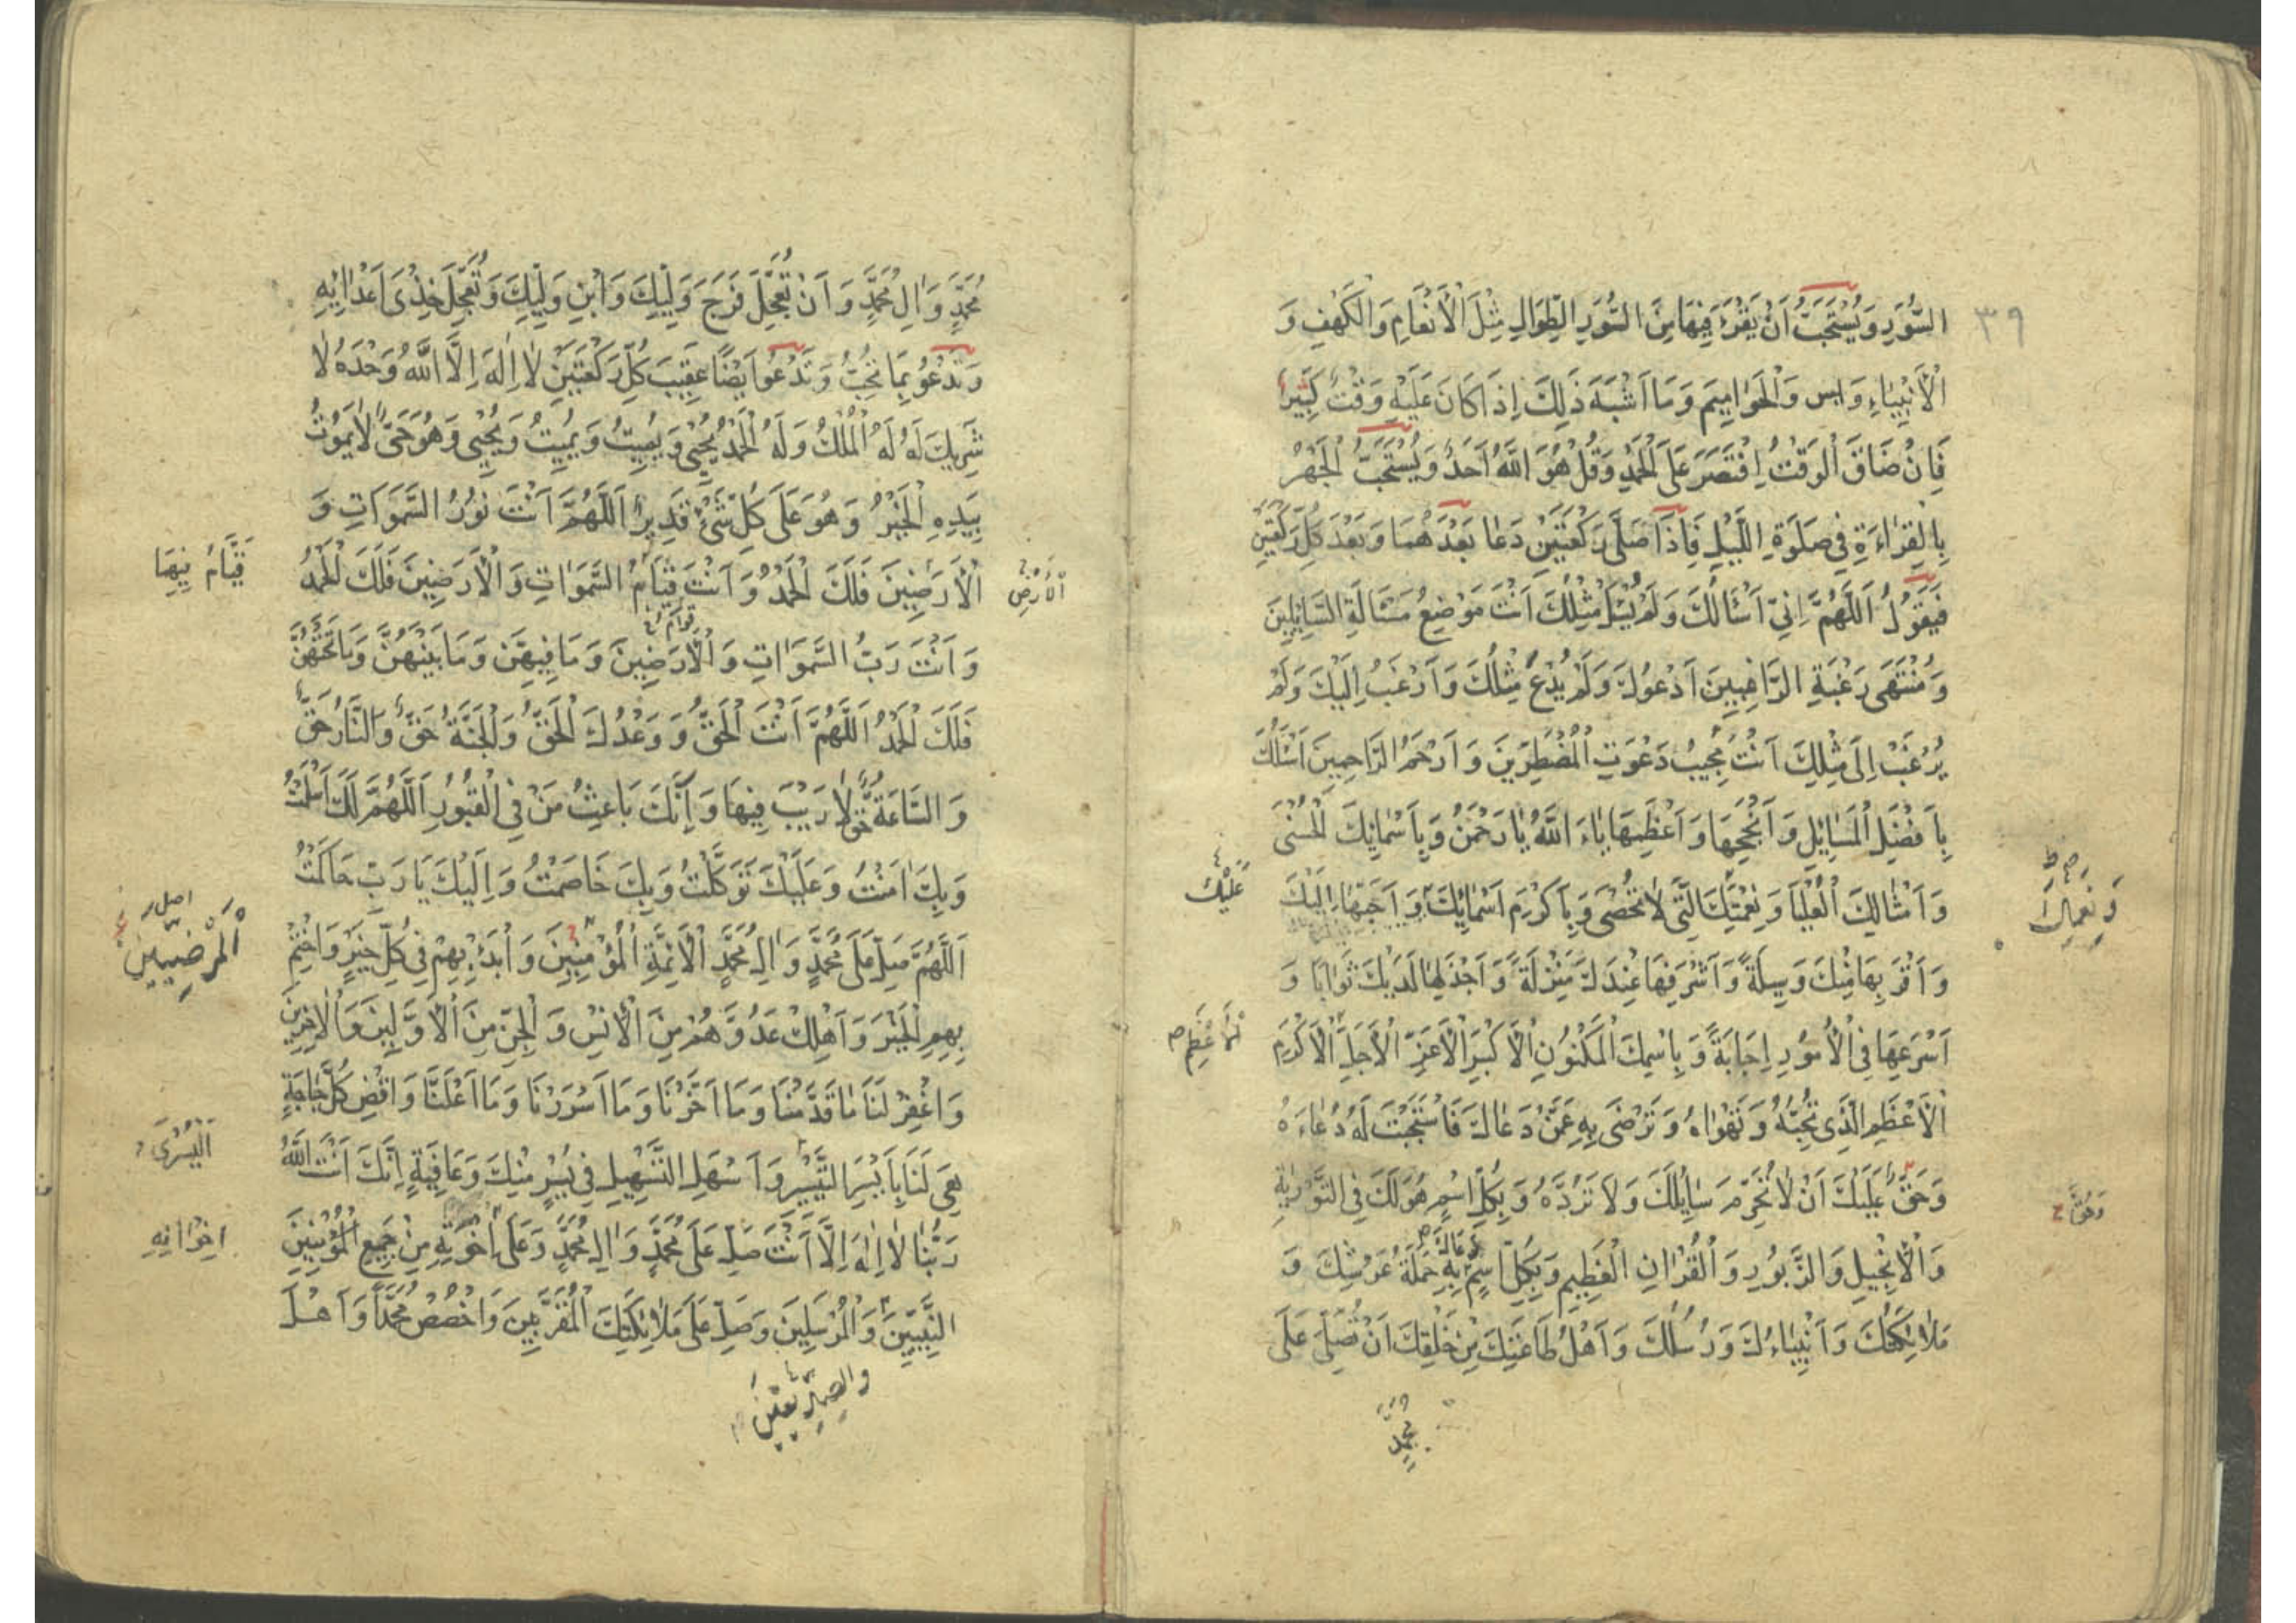 ٣٩
السُّوَرِ وَيُسْتَحَبُّ اَنْ يَقْرَءَ فِيهَا مِنَ السُّوَرِ الطِّوَالِ مِثْلَ الْاَنْعَامِ وَالْكَهْفِ وَ
الْاَنْبِيَاءِ وَ يس وَالْحَوَامِيمِ وَمَا اَشْبَهَ ذَلِكَ اِذَا كَانَ عَلَيْهِ وَقْتٌ كَثِيرٌ
فَاِنْ ضَاقَ الْوَقْتُ اِقْتَصَرَ عَلَى الْحَمْدِ وَقُلْ هُوَ اللَّهُ اَحَدٌ وَيُسْتَحَبُّ الْجَهْرُ
بِالْقِرَاءَةِ فِي صَلَوةِ اللَّيْلِ فَاِذَا صَلَّى رَكْعَتَيْنِ دَعَا بَعْدَهُمَا وَبَعْدَ كُلِّ رَكْعَتَيْنِ
فَيَقُولُ اَللَّهُمَّ اِنِّي اَسْئَالُكَ وَلَمْ يُسْئَلْ مِثْلُكَ اَنْتَ مَوْضِعُ مَسْئَالَةِ السَّائِلِينَ
وَمُنْتَهَى رَغْبَةِ الرَّاغِبِينَ اَدْعُوكَ وَلَمْ يُدْعَ مِثْلُكَ وَاَرْغَبُ اِلَيْكَ وَلَمْ
يُرْغَبْ اِلَى مِثْلِكَ اَنْتَ مُجِيبُ دَعْوَتِ الْمُضْطَرِّينَ وَاَرْحَمُ الرَّاحِمِينَ اَسْئَلُكَ
بِاَفْضَلِ الْمَسَائِلِ وَاَنْجَحِهَا وَاَعْظَمِهَا يَاءَ اللَّهُ يَا رَحْمَنُ وَبِاَسْمَائِكَ الْحُسْنَى
وَاَمْثَالِكَ الْعُلْيَا وَنِعْمَتِكَ الَّتِي لَا تُحْصَى وَبِاَكْرَمِ اَسْمَائِكَ وَاَحَبِّهَا اِلَيْكَ
وَنِعَمِكَ
عَلَيْكَ
وَاَقْرَبِهَا مِنْكَ وَسِيلَةً وَاَشْرَفِهَا عِنْدَكَ مَنْزِلَةً وَاَجْزَلِهَا لَدَيْكَ ثَوَابًا وَ
اَسْرَعِهَا فِي الْاُمُورِ اِجَابَةً وَبِاسْمِكَ الْمَكْنُونِ الْاَكْبَرِ الْاَعَزِّ الْاَجَلِّ الْاَكْرَمِ
الْاَعْظَمِ الَّذِي تُحِبُّهُ وَتَهْوَاهُ وَتَرْضَى بِهِ عَمَّنْ دَعَاكَ فَاسْتَجَبْتَ لَهُ دُعَاءَهُ
وَحَقٌّ عَلَيْكَ اَنْ لَا تُحَرِّمَ سَائِلَكَ وَلَا تَرُدَّهُ وَبِكُلِّ اسْمٍ هُوَ لَكَ فِي التَّوْرٰيةِ
وَحَقٌّ
وَالْاِنْجِيلِ وَالزَّبُورِ وَالْقُرْانِ الْعَظِيمِ وَبِكُلِّ اسْمٍ دَعَاكَ بِهِ حَمَلَةُ عَرْشِكَ وَ
مَلَائِكَتُكَ وَاَنْبِيَاءُكَ وَرُسُلُكَ وَاَهْلُ طَاعَتِكَ مِنْ خَلْقِكَ اَنْ تُصَلِّىَ عَلَى
مُحَمَّدٍ
مُحَمَّدٍ وَالِ مُحَمَّدٍ وَاَنْ تُعَجِّلَ فَرَجَ وَلِيِّكَ وَابْنِ وَلِيِّكَ وَتُعَجِّلَ خِزْىَ اَعْدَائِهِ
وَتَدْعُو بِمَا تُحِبُّ وَتَدْعُو اَيْضًا عَقِيبَ كُلِّ رَكْعَتَيْنِ لَا اِلَهَ اِلَّا اللَّهُ وَحْدَهُ لَا
شَرِيكَ لَهُ لَهُ الْمُلْكُ وَلَهُ الْحَمْدُ يُحْيِي وَيُمِيتُ وَيُمِيتُ وَيُحْيِي وَهُوَ حَىٌّ لَا يَمُوتُ
بِيَدِهِ الْخَيْرُ وَهُوَ عَلَى كُلِّ شَىْءٍ قَدِيرٌ اَللَّهُمَّ اَنْتَ نُورُ السَّمَوَاتِ وَ
الْاَرَضِينَ فَلَكَ الْحَمْدُ وَاَنْتَ قَيَّامُ السَّمَوَاتِ وَالْاَرَضِينَ فَلَكَ الْحَمْدُ
الْاَرْضِ
قِوَامُ
وَاَنْتَ رَبُّ السَّمَوَاتِ وَالْاَرَضِينَ وَمَا فِيهِنَّ وَمَا بَيْنَهُنَّ وَمَا تَحْتَهُنَّ
فَلَكَ الْحَمْدُ اَللَّهُمَّ اَنْتَ الْحَقُّ وَوَعْدُكَ الْحَقُّ وَالْجَنَّةُ حَقٌّ وَالنَّارُ حَقٌّ
وَالسَّاعَةُ حَقٌّ لَا رَيْبَ فِيهَا وَاِنَّكَ بَاعِثُ مَنْ فِي الْقُبُورِ اَللَّهُمَّ لَكَ اَسْلَمْتُ
وَبِكَ اٰمَنْتُ وَعَلَيْكَ تَوَكَّلْتُ وَبِكَ خَاصَمْتُ وَاِلَيْكَ يَا رَبِّ حَاكَمْتُ
اَللَّهُمَّ صَلِّ عَلَى مُحَمَّدٍ وَالِ مُحَمَّدٍ الْاَئِمَّةِ الْمُؤْمِنِينَ وَابْدَءْ بِهِمْ فِي كُلِّ خَيْرٍ وَاخْتِمْ
اَلْمَرْضِيِّينَ
اصل
بِهِمِ الْخَيْرَ وَاَهْلِكْ عَدُوَّهُمْ مِنَ الْاِنْسِ وَالْجِنِّ مِنَ الْاَوَّلِينَ وَالْاٰخِرِينَ
وَاغْفِرْ لَنَا مَا قَدَّمْنَا وَمَا اَخَّرْنَا وَمَا اَسْرَرْنَا وَمَا اَعْلَنَّا وَاقْضِ كُلَّ حَاجَةٍ
هِىَ لَنَا بِاَيْسَرِ التَّيْسِيرِ وَاَسْهَلِ التَّسْهِيلِ فِي يُسْرٍ مِنْكَ وَعَافِيَةٍ اِنَّكَ اَنْتَ اللَّهُ
اَلْيُسْرَى
رَبُّنَا لَا اِلٰهَ اِلَّا اَنْتَ صَلِّ عَلَى مُحَمَّدٍ وَالِ مُحَمَّدٍ وَعَلَى اِخْوَتِهِ مِنْ جَمِيعِ الْمُؤْمِنِينَ
اِخْوَانِهِ
النَّبِيِّينَ وَالْمُرْسَلِينَ وَصَلِّ عَلَى مَلَائِكَتِكَ الْمُقَرَّبِينَ وَاخْصُصْ مُحَمَّدًا وَاَهْلَ
وَالصِّدِّيقِينَ